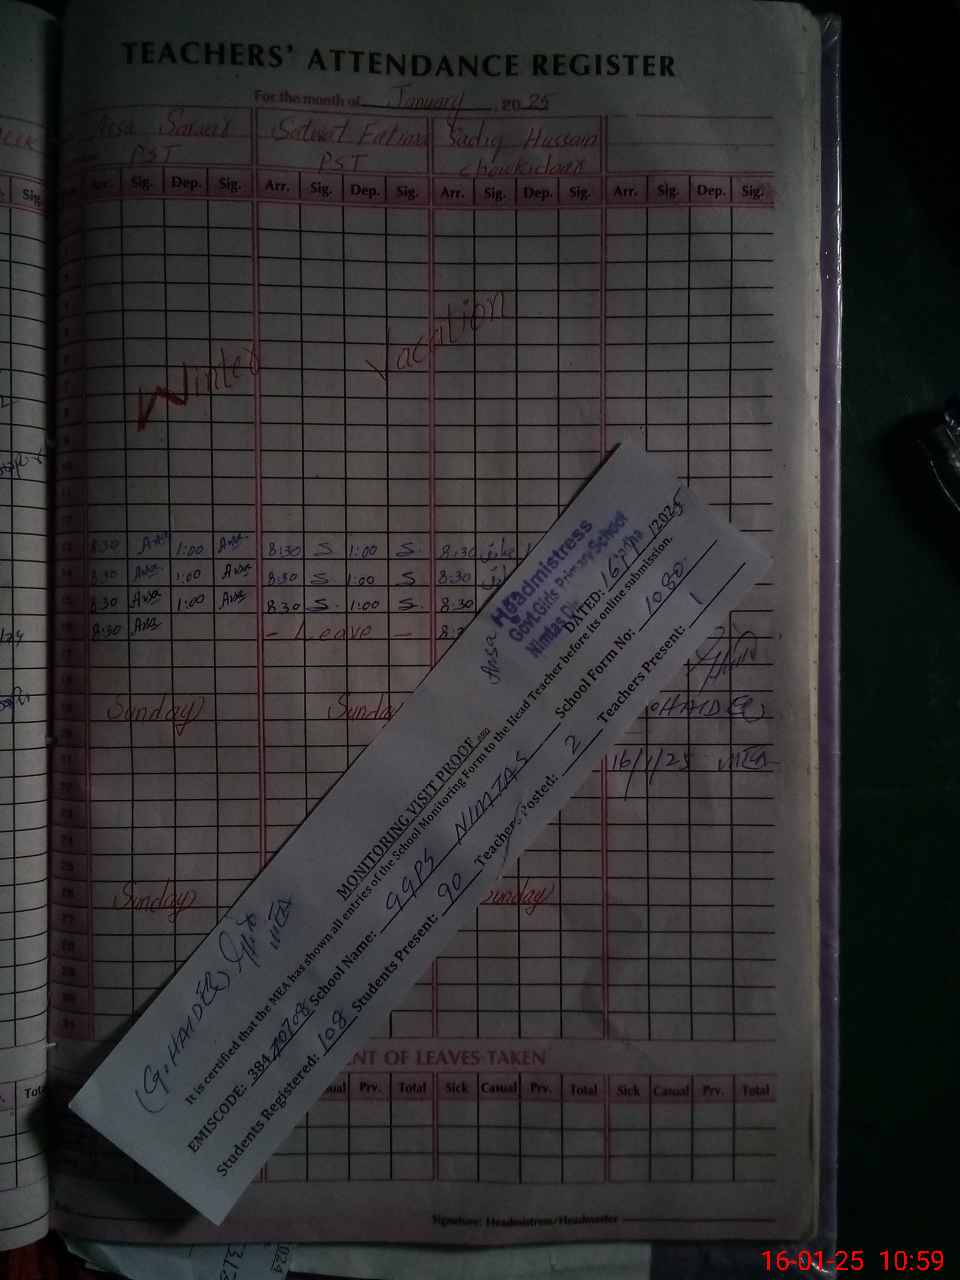 TEACHERS' ATTENDANCE REGISTER
For the month of January, 2025
Satwat Fatima Sadiq Hussain
PST PST chowkidaar
Arr. Sig. Dep. Sig. Arr. Sig. Dep. Sig. Arr. Sig. Dep. Sig. Arr. Sig. Dep. Sig.
Winter Vacation
8:30 Ansa 1:00 Ansa 8:30 S 1:00 S. 8:30
8:30 Ansa 1:00 Ansa 8:30 S 1:00 S. 8:30
8:30 Ansa 1:00 Ansa 8:30 S. 1:00 S. 8:30
8:30 Ansa - Leave -
Sunday Sunday
Sunday Sunday
HAIDER
16/1/25 MEA
Ansa
Headmistress
Govt. Girls Primary School
Nimtas
DATED: 16 2025
MONITORING VISIT PROOF
It is certified that the MEA has shown all entries of the School Monitoring Form to the Head Teacher before its online submission.
EMISCODE: School Name: GGPS NIMTAS School Form No: 1080
Students Registered: 108 Students Present: 90 Teachers Posted: 2 Teachers Present: 1
(G. HAIDER)
MEA
NT OF LEAVES TAKEN
Casual Prv. Total Sick Casual Prv. Total Sick Casual Prv. Total
Signature: Headmistress/Headmaster
16-01-25 10:59